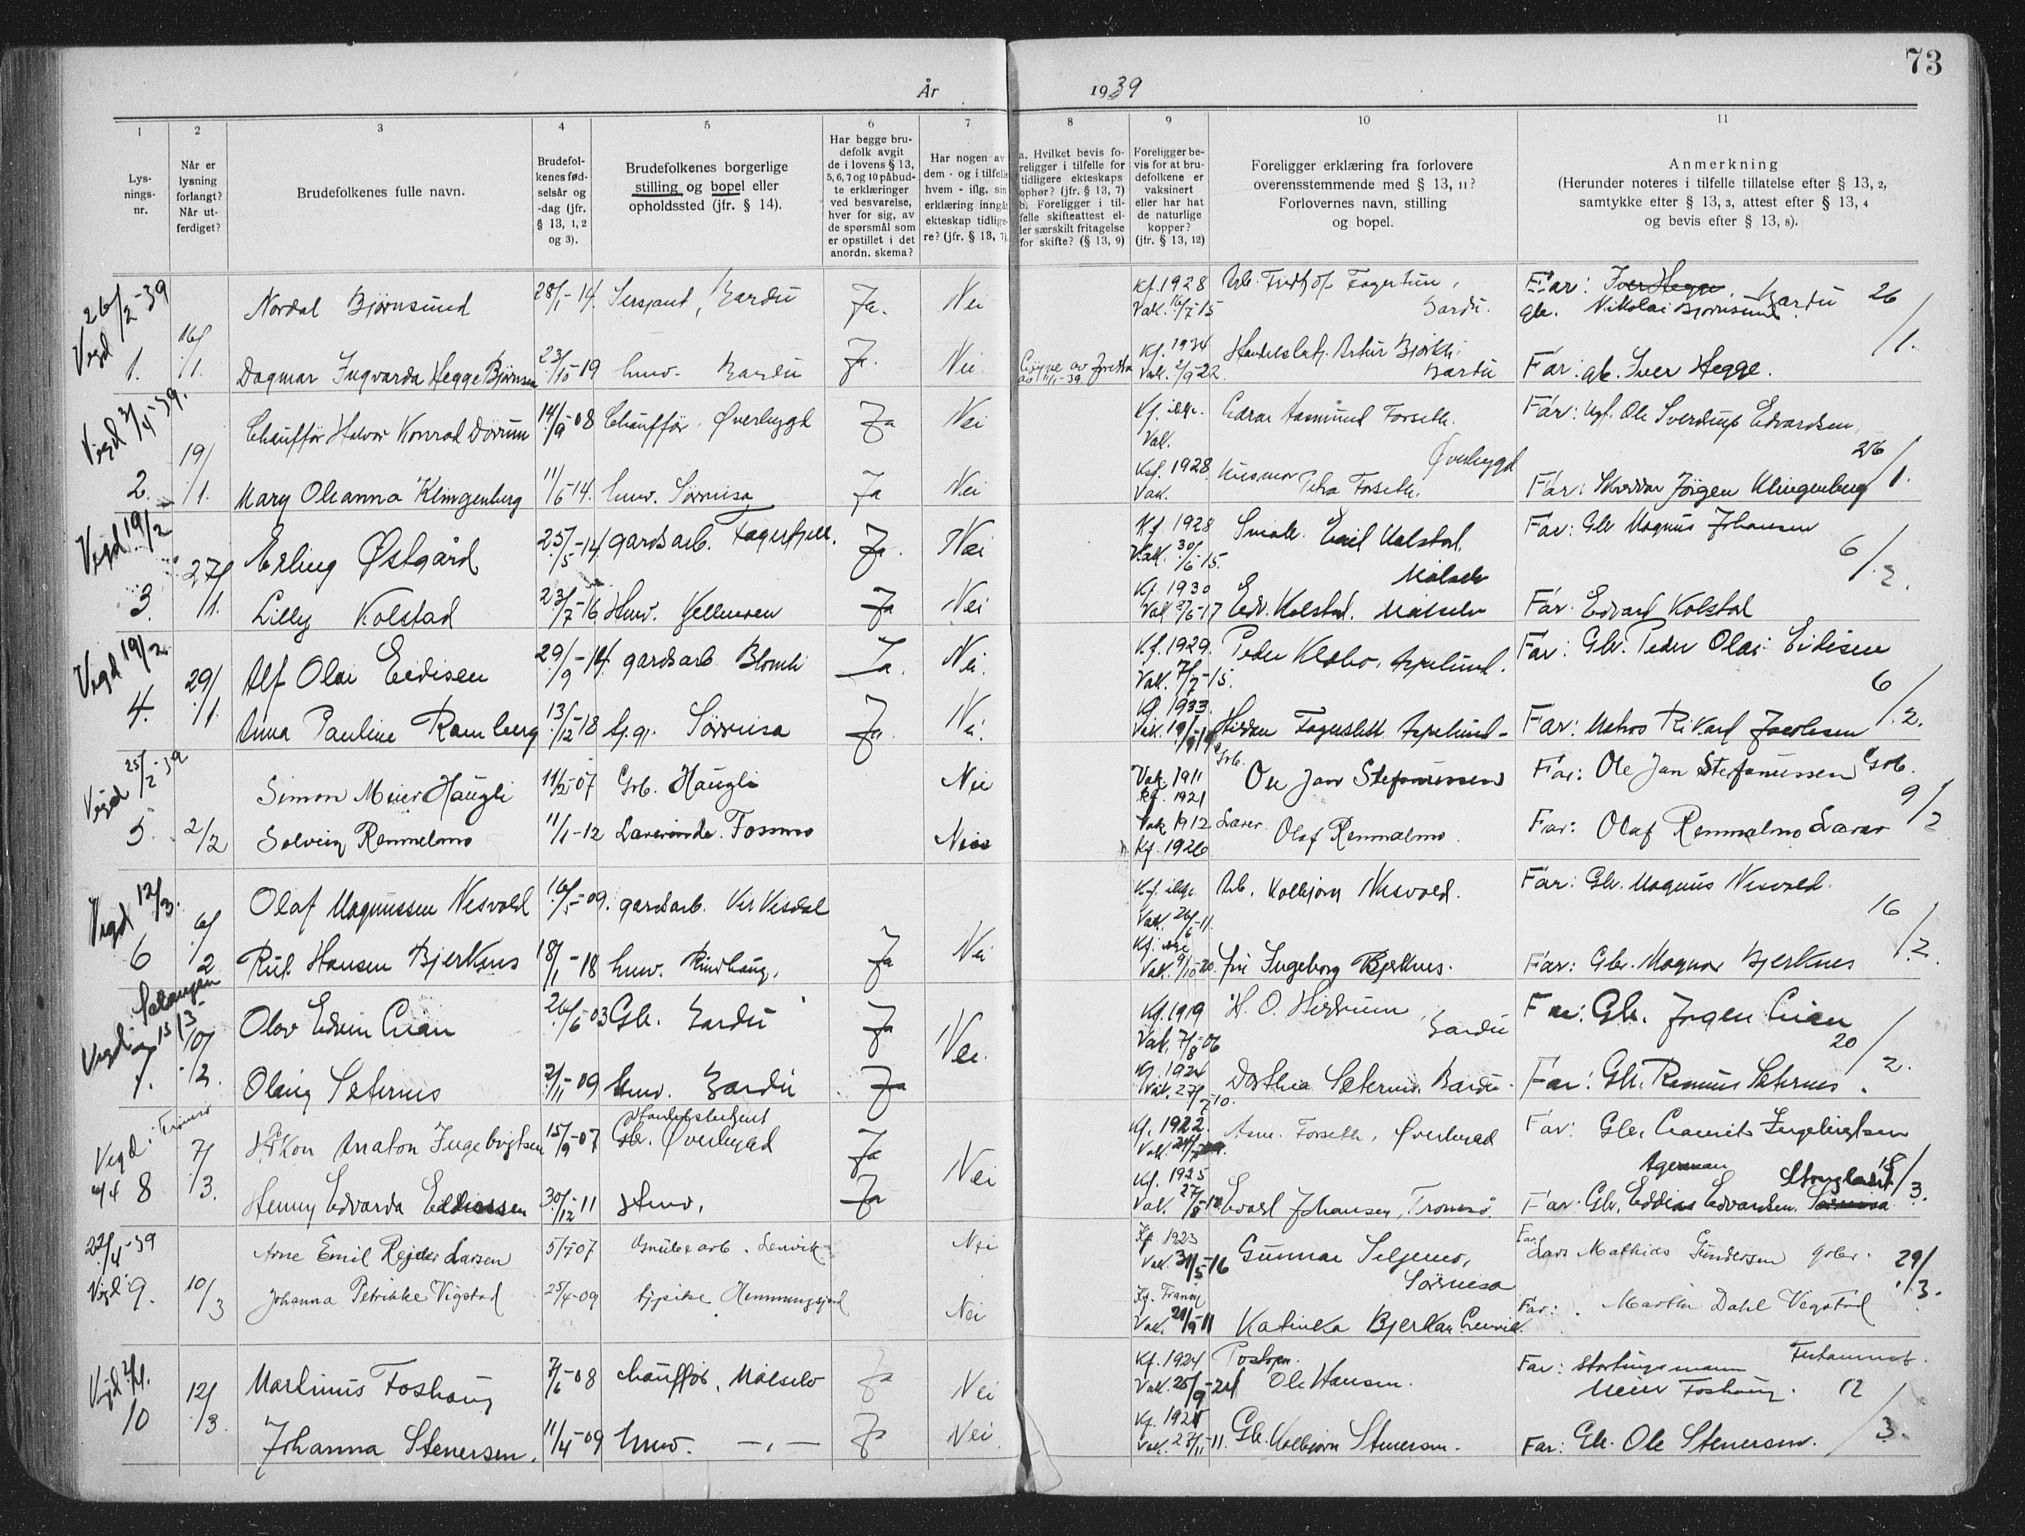 73
År 1939
1 2 3 4 5 6 7 8 9 10 11
Lys-
nings-
nr.
Når er
lysning
forlangt?
Når ut-
ferdiget?
Brudefolkenes fulle navn.
Brudefol-
kenes fød-
selsår og
-dag (jfr.
§ 13, 1, 2
og 3).
Brudefolkenes borgerlige
stilling og bopel eller
opholdssted (jfr. § 14).
Har begge bru-
defolk avgit
de i lovens § 13,
5, 6, 7 og 10 påbud-
te erklæringer
ved besvarelse,
hver for sig, av
de spørsmål som
er opstillet i det
anordn. skema?
Har nogen av
dem - og i tilfelle
hvem - iflg. sin
erklæring inngåt
ekteskap tidlige-
re? (jfr. § 13, 7)
a. Hvilket bevis fo-
religger i tilfelle for
tidligere ekteskaps
ophør? (jfr. § 13, 7)
b. Foreligger i til-
felle skifteattest el-
ler særskilt fritagelse
for skifte? (§ 13, 9)
Foreligger be-
vis for at bru-
defolkene er
vaksinert
eller har hat
de naturlige
kopper?
(jfr. § 13, 12)
Foreligger erklæring fra forlovere
overensstemmende med § 13, 11?
Forlovernes navn, stilling
og bopel.
Anmerkning
(Herunder noteres i tilfelle tillatelse efter § 13, 2,
samtykke efter § 13, 3, attest efter § 13, 4
og bevis efter § 13, 8).
Vigd 26/2-39
1. 16/1.
Nordal Bjørnsund 28/1-14. Sersjant, Bardu Ja. Nei Kf. 1928 Vak. 16/7-15 Arb. Fridtjof Fagertun, Bardu. Far: Iver Hegge, Bardu 26/1.
gb. Nikolai Bjørnsund
Dagmar Ingvarda Hegge Bjørnsen 23/10-19 husv. Bardu Ja. Nei. Kf. 1934 Vak. 2/9-22. Artur Bjørkli. Bardu Far: gb. Iver Hegge.
Vigd 2/4-39.
2. 19/1.
Chauffør Halvor Konrad Dørum 14/9-08 Chauffør Øverbygd Ja Nei Kf. Vak. Asmund Forseth. Øverbygd Far: Ole Sverdrup Edvardsen, 26/1.
Mary Oleanna Klingenberg 11/6-14. husv. Sørreisa Ja Nei Kf. 1928. Vak. Husmor Petra Forseth. Far: Skredder Jørgen Klingenberg
Vigd 19/2
3. 27/1.
Erling Østgård 25/5-14 gardsarb. Fagerfjell. Ja. Nei Kf. 1928 Vak. 30/6-15. Emil Kolstad. Målselv Far: Gbr Magnus Johansen 6/2.
Lilly Kolstad 23/7-16 Husv. Ja Nei Kf. 1930 Vak. Edv. Kolstad. Målselv Far: Edvard Kolstad
Vigd 19/2
4. 29/1
Alf Olai Eidisen 29/9-14. gardsarb. Blomli Ja. Nei. Kf. 1929. Vak. 7/7-15. Peder Klobo, Far: Gbr. Peder Olai Eidisen 6/2.
Anna Pauline Ramberg 13/12-18 Sørreisa Ja. Nei. Kf. 1933. Vak. Far: Rikard Jacobsen
Vigd 25/2-39
5. 2/2
Simon Meier Haugli 11/2-07 Grb. Haugli Nei Vak. 1911 Kf. 1921 Grb. Ole Jan Stefanussen Far: Ole Jan Stefanussen Grb. 9/2
Solveig Remmelmo 11/1-12 Lærerinde. Fossmo Nei Vak 1912 Kf. 1926 Lærer Olaf Remmelmo. Far: Olaf Remmelmo Lærer
Vigd 12/3.
6 6/2
Olaf Magnussen Nesvold 16/5-09. gardsarb. Vak. 26/6-11. Arb. Kolbjørn Nesvold. Far: Gbr. Magnus Nesvold. 16/2.
Rut Hansen Bjerknes 18/1-18 husv. Rindhaug. Ja Nei Vak. 9/10-20. fru Ingeborg Bjerknes. Far: Gbr. Magnar Bjerknes
Vigd i Salangen 15/3-
7. 10/2.
Olav Edvin Lien 26/6-03 Gbr. Bardu Ja Nei. Kf. 1919 Vak. 7/8-06 H. O. Hidrum, Bardu Far: Gbr. Jørgen Lien 20/2.
Olaug Seternes 2/11-09 husv. Bardu Ja Kf. 1924 Vak. 27/7-10. Dorthea Seternes. Bardu. Far: Gbr. Rasmus Seternes.
Vigd i Tromsø 4/4
8 7/3.
Håkon Anton Ingebrigtsen 15/9-07 Handelsbetjent Gbr. Øverbygd Ja Nei Kf. 1922. Vak. Asm. Forseth, Øverbygd Far: Gbr. Ingebrigtsen 18/3.
Henny Edvarda Eddiassen 30/12-11 Husv. Ja Kf. 1925 Vak. Edvard Johansen, Tromsø. Agerman Far: Gbr. Eddias Edvardsen. Sørreisa
22/4-39
Vigd 9. 10/3
Arne Emil Rejder Larsen 5/7-07 Grubearb. Lenvik Nei Kf. 1923 Vak. 31/5-16 Gunnar Seljemo, Sørreisa Far: Lars Mathias Gundersen gbr. 29/3.
Johanna Petrikke Vigstad 25/4-09 Hemmingsjord Nei Kf. Vak. 21/9-11 Katinka Bjerkan Lenvik. Far: Martin Dahl Vegstad
Vigd 2/4.
10 12/3.
Martinus Foshaug 7/6-08 chauffør, Målselv Ja Nei Kf. 1924 Vak. 25/9-24 Ole Hansen. Far: stortingsmann Meier Foshaug. 12/3.
Johanna Stenersen. 11/4-09 husv. -,- Ja Nei. Kf. 1925 Vak. 23/11-11. Gbr. Kolbjørn Stenersen. Far: Gbr. Ole Stenersen.